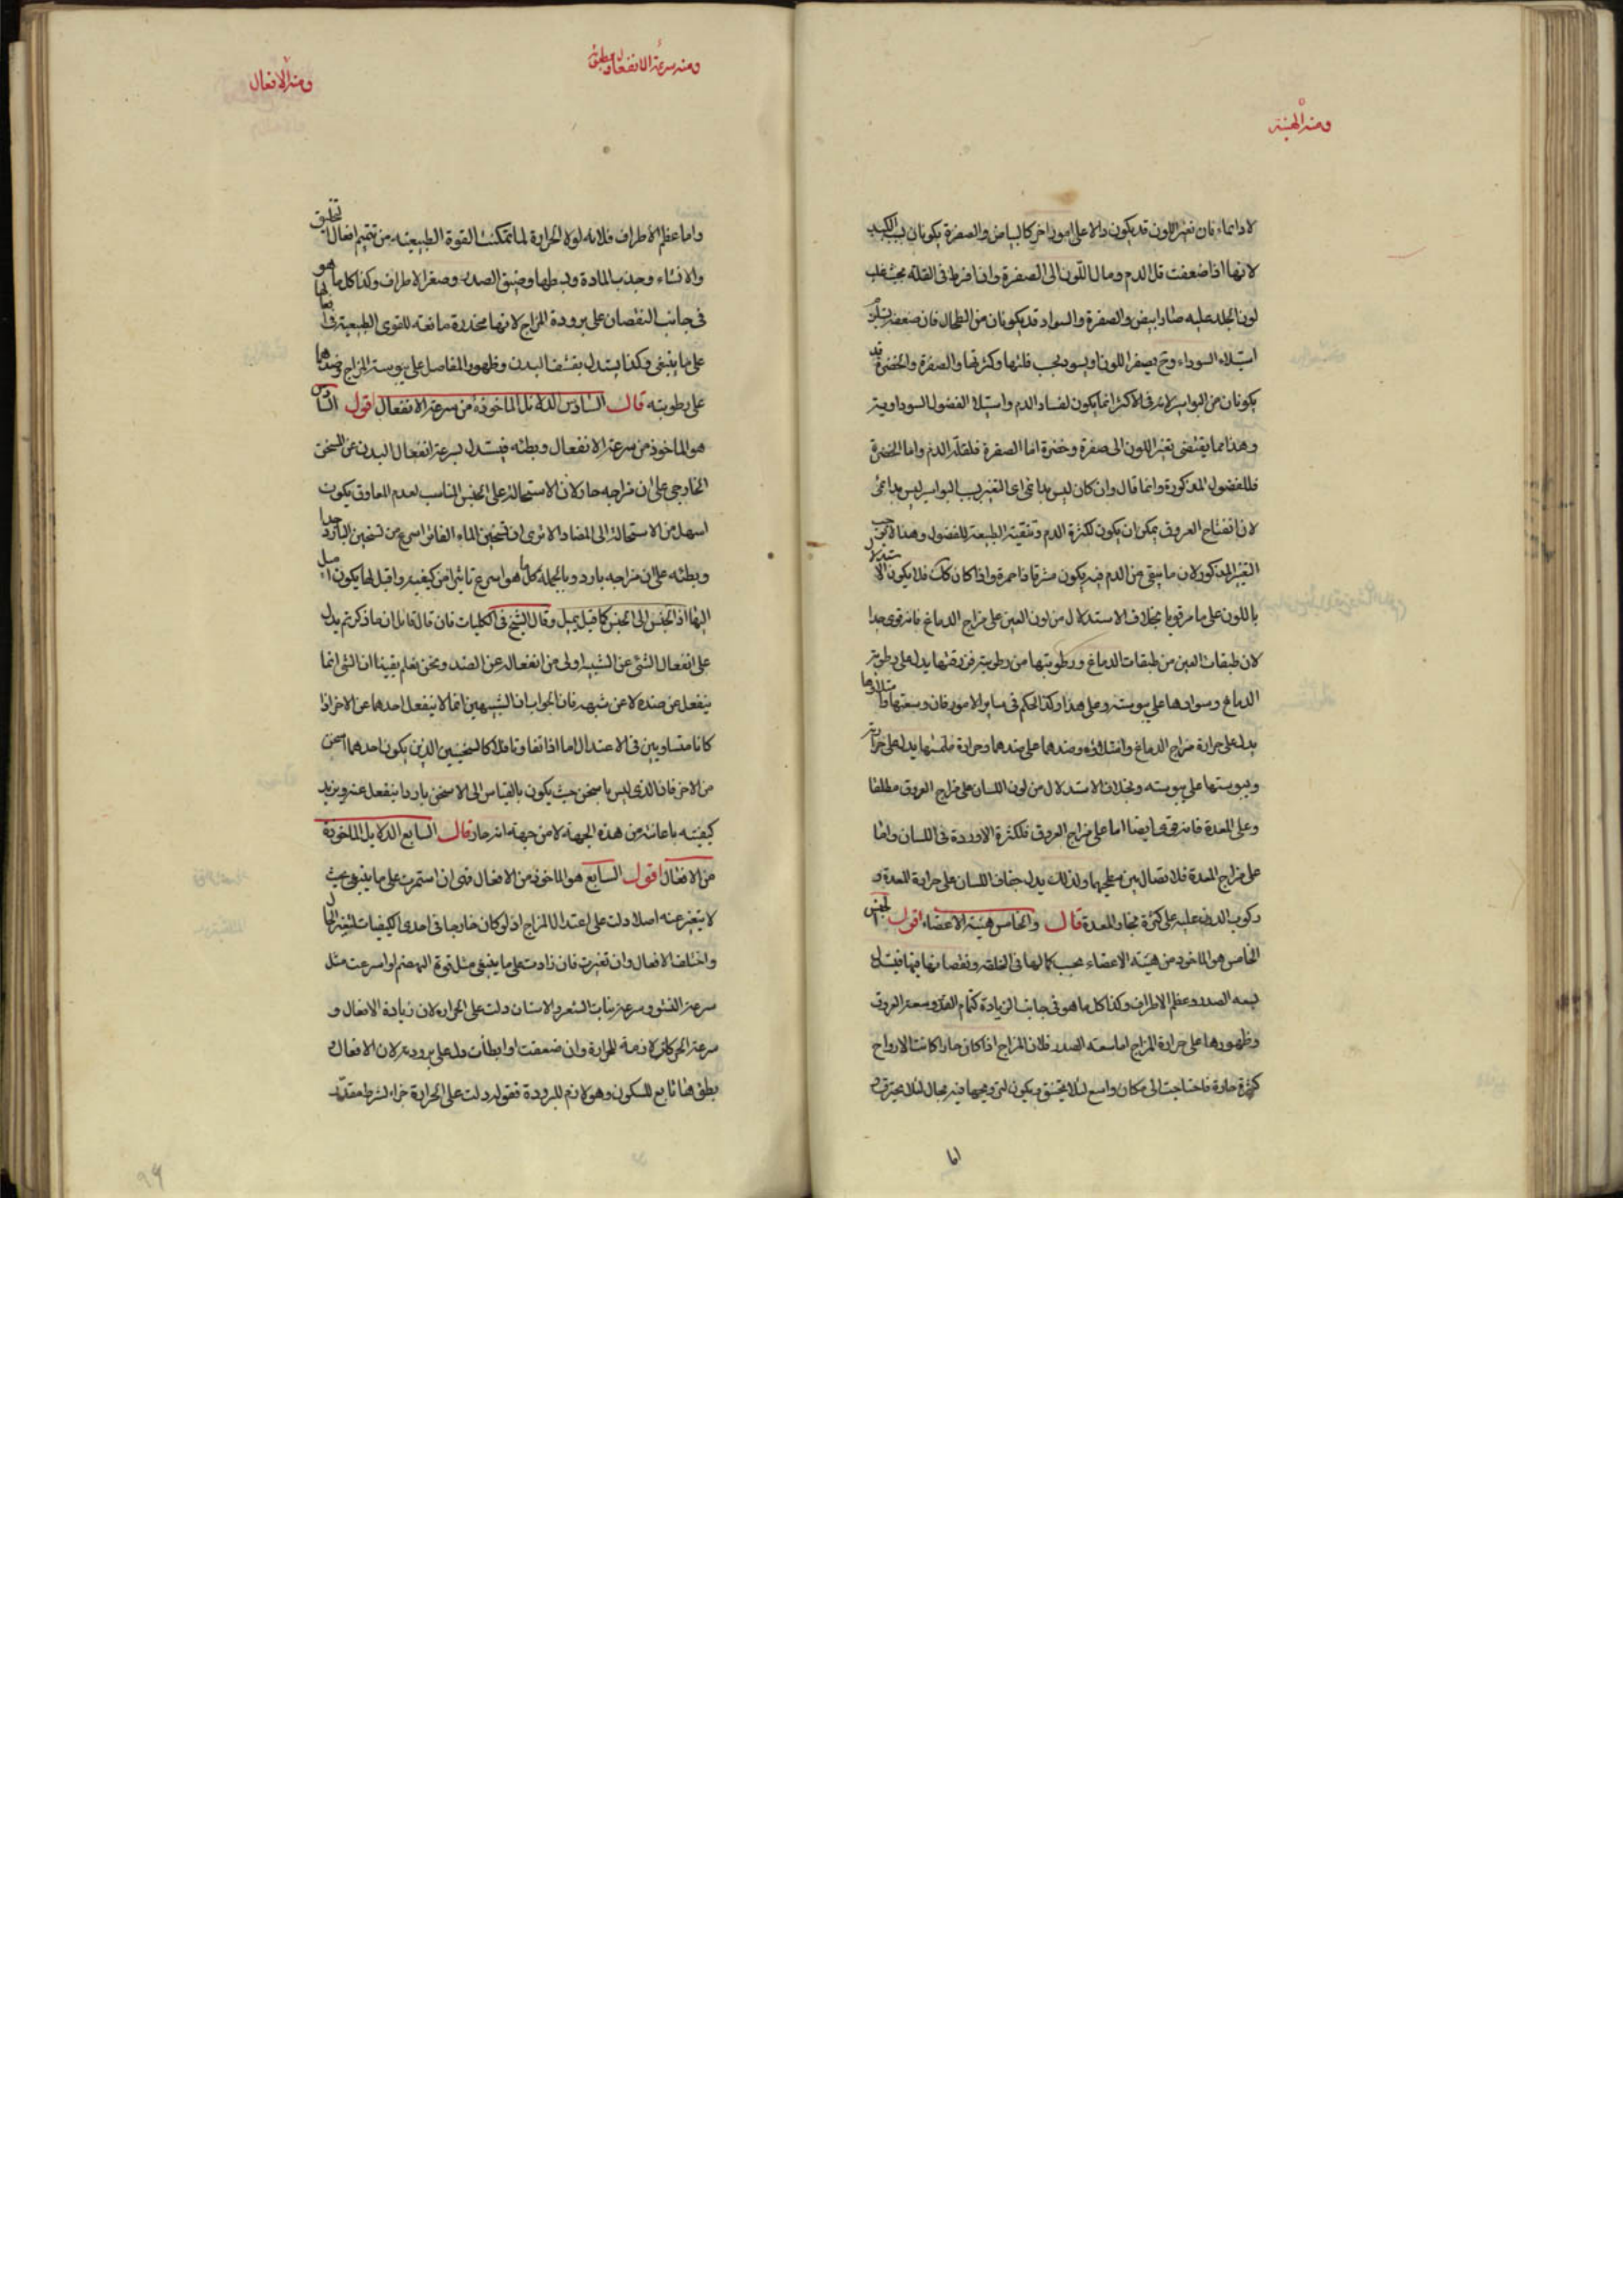 ومنه الهيئة
لا دائما، فان تغير اللون قد يكون دالا على امور اخر كالبياض والصفرة يكونان بسبب الكبد
لانها اذا ضعفت قل الدم ومال اللون الى الصفرة واذا فرط فى القلة بحيث غلب
لون الجلد عليه صار ابيض والصفرة والسواد قد يكونان من الطحال فان ضعفه يستلزم
استيلاء السوداء وح يصفر اللون او يسود بحسب قلتها وكثرتها والصفرة والخضرة قد
يكونان من البواسير لانه فى الاكثر انما يكون لفساد الدم واستيلاء الفضول السوداوية
وهذا مما يقتضى تغير اللون الى صفرة وخضرة اما الصفرة فلقلة الدم واما الخضرة
فللفضول المذكورة وانما قال وان كان ليس بدائمى اى التغير بسبب البواسير ليس بدائمى
لان انفتاح العروق يمكن ان يكون لكثرة الدم وتنقية الطبيعة للفضول وهذا لا يوجب
التغير المذكور لان ما يبقى من الدم فيه يكون مشرقا ذا حمرة واذا كان كك فلا يكون الاستدلال
باللون على ما مر قويا بخلاف الاستدلال من لون العين على مزاج الدماغ فانه قوى جدا
لان طبقات العين من طبقات الدماغ ورطوبتها من رطوبته فزرقتها يدل على رطوبة
الدماغ وسوادها على يبوسته وعلى هذا وكذا الحكم فى ساير الامور فان وسعتها وامتلاءها
يدل على حرارة مزاج الدماغ وامتلائه وضدهما على ضدهما وحرارة ملمسها يدل على حرارته
ويبوستها على يبوسته وبخلاف الاستدلال من لون اللسان على مزاج العروق مطلقا
وعلى المعدة فانه قوى ايضا اما على مزاج العروق فلكثرة الاوردة فى اللسان واما
على مزاج المعدة فلاتصال بين سطحيهما ولذلك يدل جفاف اللسان على حرارة المعدة و
ركوب الدرن عليه على كثرة بخار المعدة قال والخامس هيئة الاعضاء اقول الجنس
الخامس هو الماخوذ من هيئة الاعضاء بحسب كمالها فى الخلقه ونقصانها فيها فيستدل
بسعه الصدر وعظم الاطراف وكذا كل ما هو فى جانب الزيادة كتمام القد وسعة العروق
وظهورها على حرارة المزاج اما سعته الصدر فلان المزاج اذا كان حارا كانت الارواح
كثيرة حارة فاحتاجت الى مكان واسع لئلا يختنق ويكون لترويحها فيه مجال لئلا يحترق و
اما
ومنه سرعة الانفعال وبطؤه
ومنه الافعال
واما عظم الاطراف فلانه لولا الحرارة لما تمكنت القوة الطبيعيه من تتميم افعال التخليق
والانشاء وجذب المادة وبسطها وضيق الصدر وصغر الاطراف وكذا كل ما هو
فى جانب النقصان على برودة المزاج لانها مخدرة مانعه للقوى الطبيعية وافعالها
على ما ينبغى وكذا يستدل بقشف البدن وظهور المفاصل على يبوسة المزاج وضدهما
على رطوبته قال السادس الدلايل الماخوذة من سرعة الانفعال اقول السادس
هو الماخوذ من سرعة الانفعال وبطئه فيستدل بسرعة انفعال البدن عن المسخن
الخارجى على ان مزاجه حار لان الاستحالة على الجنس المناسب لعدم المعاوق يكون
اسهل من الاستحالة الى المضاد الا ترى ان تسخين الماء الفاتر اسرع من تسخين البارد جدا
وبطئه على ان مزاجه بارد وبالجملة كل ما هو اسرع تاثرا من كيفيه واقبل لها يكون اميل
اليها اذ الجنس الى الجنس كما قيل يميل وقال الشيخ فى الكليات فان قال قائل ان ما ذكرتم يدل
على انفعال الشئ عن الشبيه اولى من انفعاله عن الضد ونحن نعلم يقينا ان الشئ انما
ينفعل عن ضده لا عن شبهه فانا الجواب ان الشبيهين انما لا ينفعل احدهما عن الاخر اذا
كانا متساويين فى الاعتدال اما اذا تفاوتا فلا كالسخنين الذين يكون احدهما اسخن
من الاخر فان الذى ليس باسخن حيث يكون بالقياس الى الاسخن باردا ينفعل عنه ويزيد
كيفيته باعانته من هذه الجهة لا من جهة انه حار قال السابع الدلايل الماخوذة
من الافعال اقول السابع هو الماخوذ من الافعال فهى ان استمرت على ما ينبغى بحيث
لا يتغير عنه اصلا دلت على اعتدال المزاج اذ لو كان خارجا فى احدى الكيفيات لتغير الحال
واختلف الافعال وان تغيرت فان زادت على ما ينبغى مثل قوة الهضم او اسرعت مثل
سرعة النشو وسرعة نبات الشعر والاسنان دلت على الحرارة لان زيادة الافعال و
سرعة الحركات لازمة للحرارة وان ضعفت او ابطأت دل على برودة لان الافعال
بطؤها تابع للسكون وهو لازم للبرودة فقوله دلت على الحرارة جزاء لشرط مقدر
٩٦